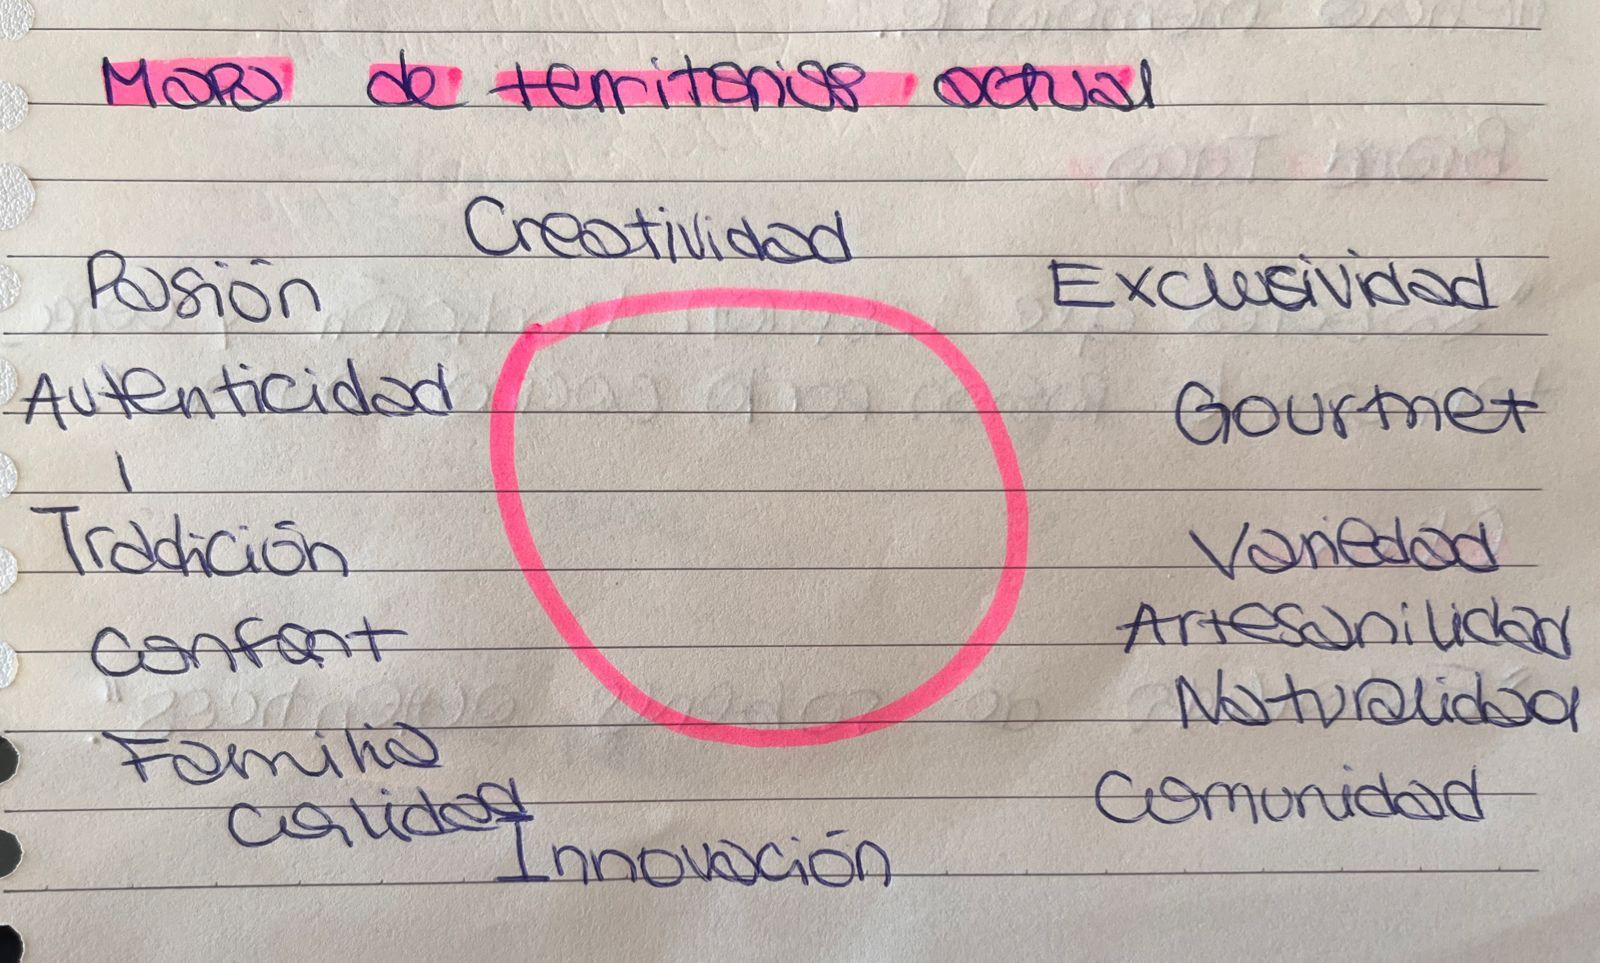 Mapa de territorios actual
Creatividad
Pasión
Exclusividad
Autenticidad
Gourmet
Tradición
Variedad
Confort
Artesanilidad
Naturalidad
Familia
Calidad
Comunidad
Innovación